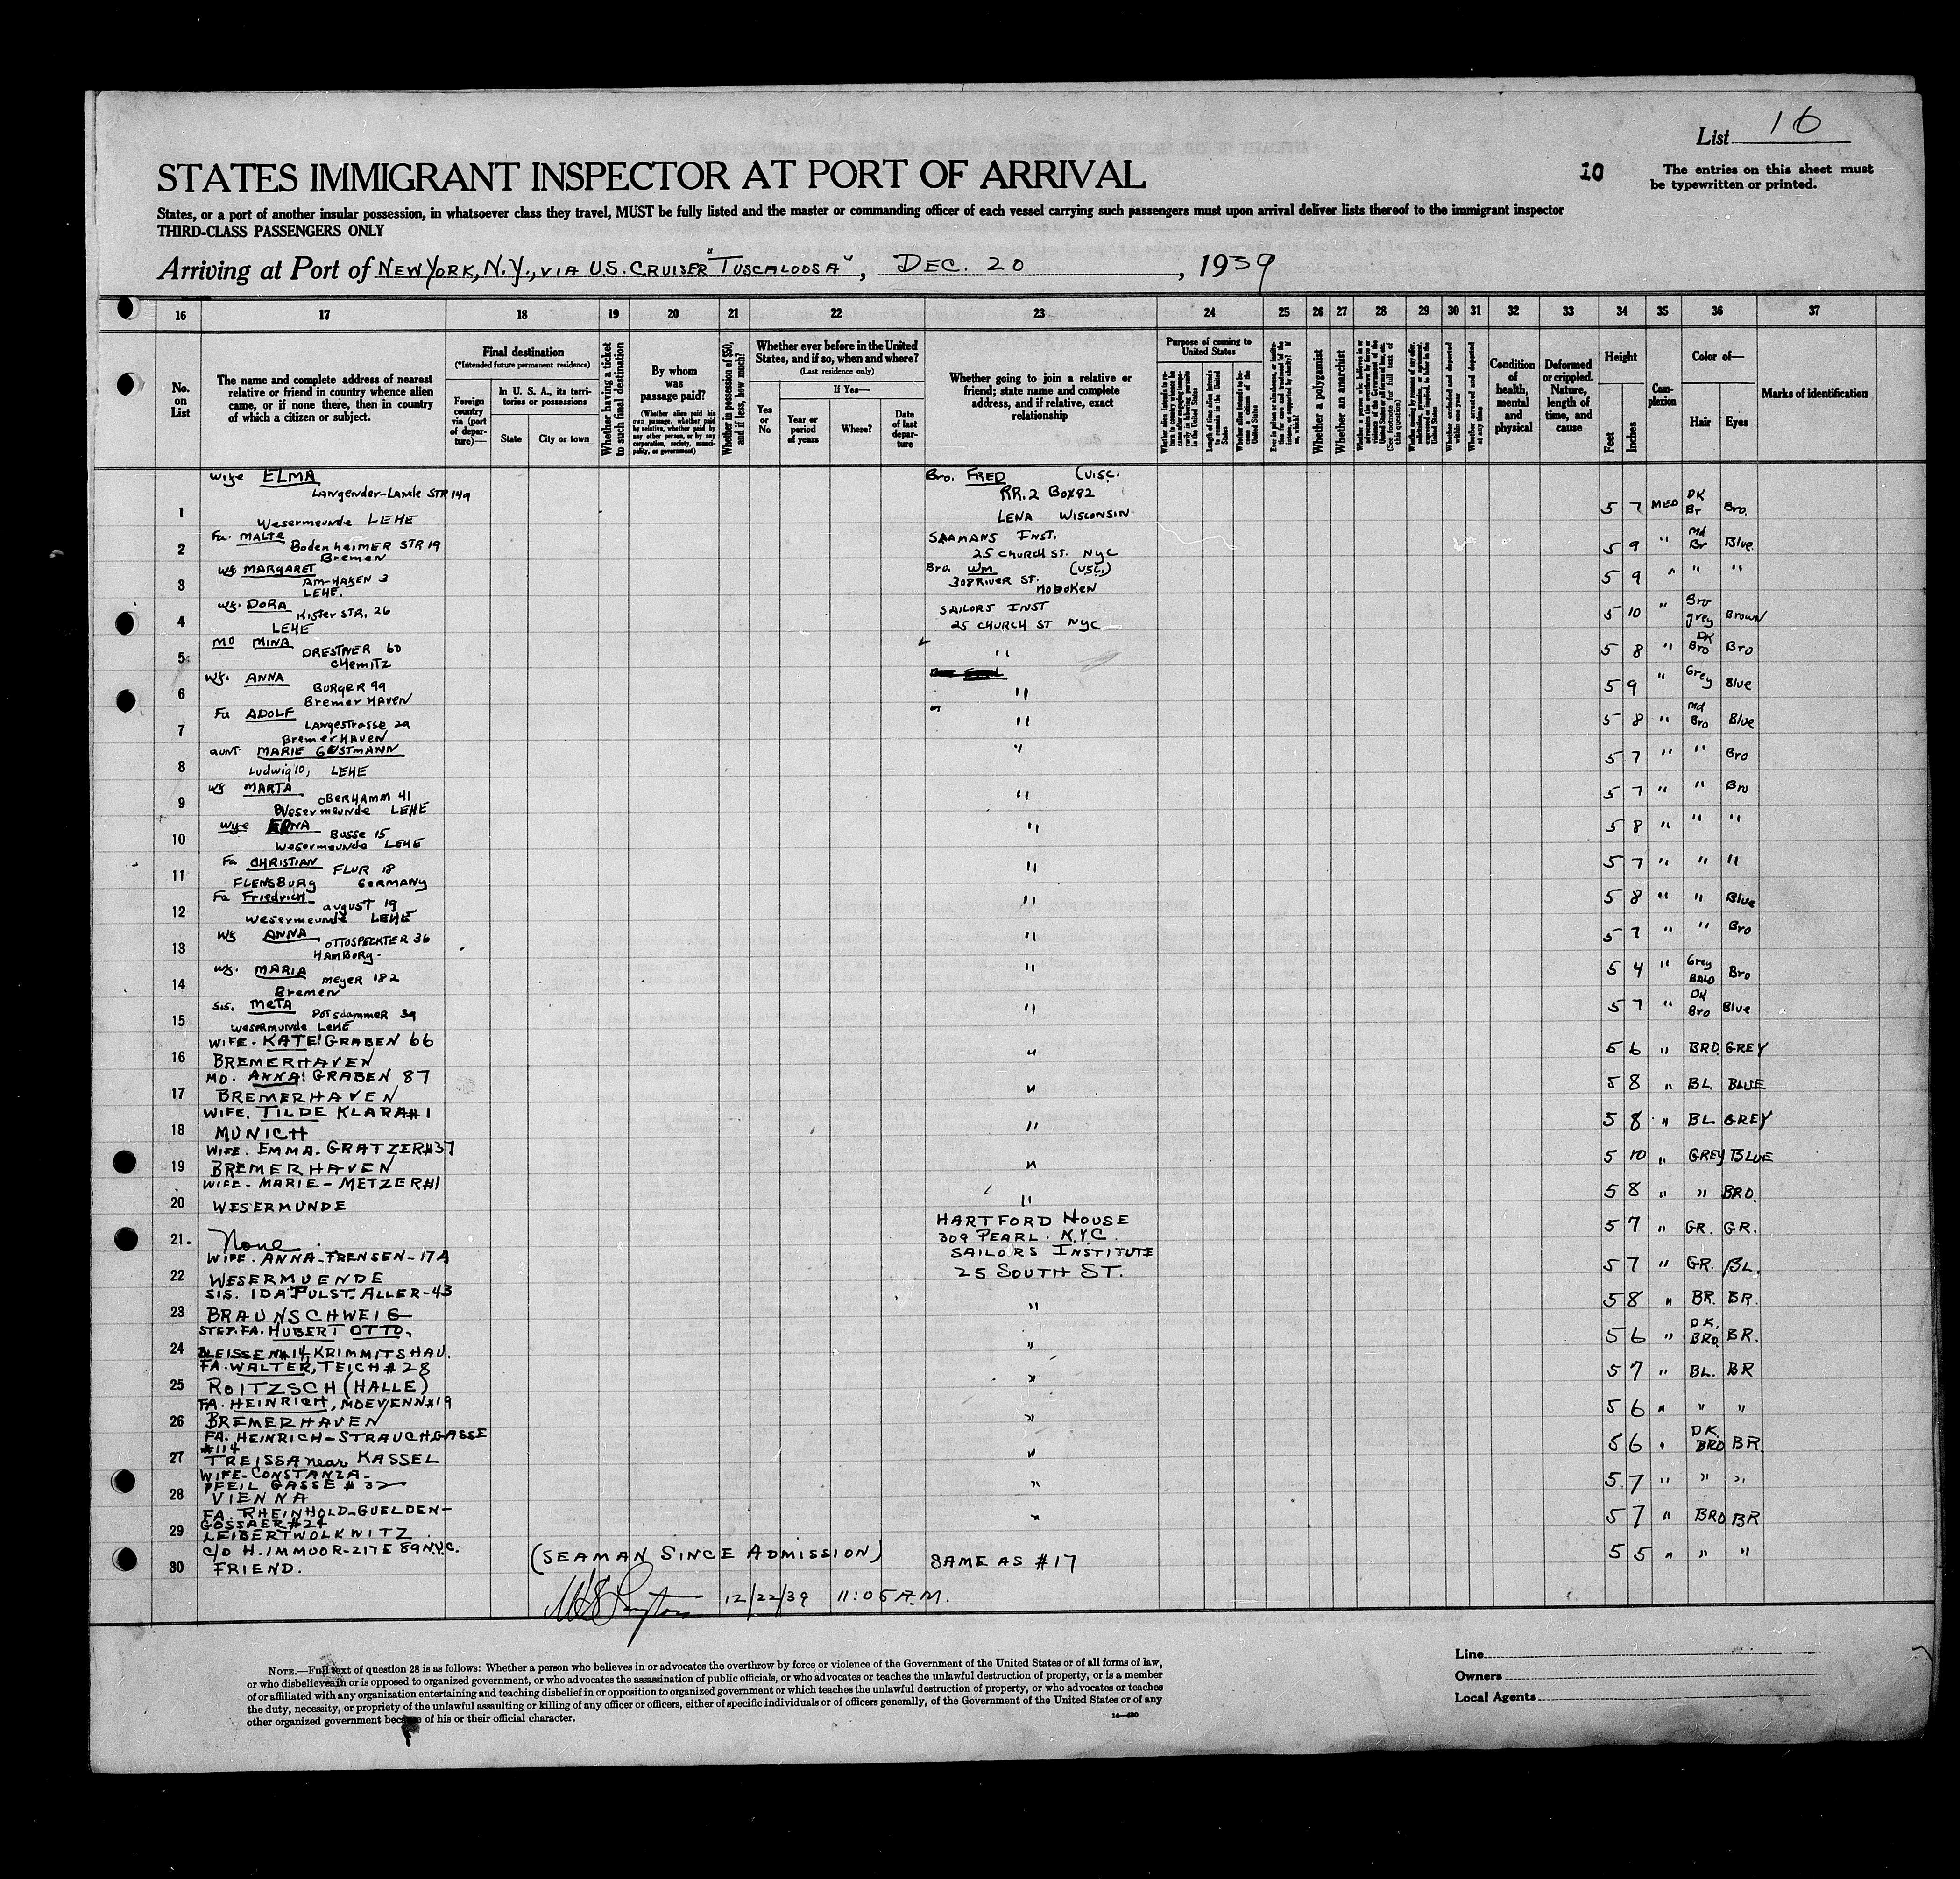 List 16
STATES IMMIGRANT INSPECTOR AT PORT OF ARRIVAL
10
The entries on this sheet must
be typewritten or printed.
States, or a port of another insular possession, in whatsoever class they travel, MUST be fully listed and the master or commanding officer of each vessel carrying such passengers must upon arrival deliver lists thereof to the immigrant inspector
THIRD-CLASS PASSENGERS ONLY
Arriving at Port of NEW YORK, N.Y., VIA U.S. CRUISER "TUSCALOOSA", DEC. 20, 1939
16 17 18 19 20 21 22 23 24 25 26 27 28 29 30 31 32 33 34 35 36 37
No. on List
The name and complete address of nearest relative or friend in country whence alien came, or if none there, then in country of which a citizen or subject.
Final destination
(*Intended future permanent residence)
Foreign country via (port of departure)—
In U. S. A., its territories or possessions
State
City or town
Whether having a ticket to such final destination
By whom was passage paid?
(Whether alien paid his own passage, whether paid by relative, whether paid by any other person, or by any corporation, society, municipality, or government)
Whether in possession of $50, and if less, how much?
Whether ever before in the United States, and if so, when and where?
(Last residence only)
Yes or No
If Yes—
Year or period of years
Where?
Date of last departure
Whether going to join a relative or friend; state name and complete address, and if relative, exact relationship
Purpose of coming to United States
Length of time alien intends to remain in the United States
Whether a polygamist
Whether an anarchist
(See footnote for full text of this question)
Whether excluded and deported within one year
Whether arrested and deported at any time
Condition of health, mental and physical
Deformed or crippled. Nature, length of time, and cause
Height
Feet
Inches
Complexion
Color of—
Hair
Eyes
Marks of identification
1 wife ELMA STR 149 Wesermeunde LEHE Bro. FRED (U.S.C. RR.2 Box 82 LENA WISCONSIN 5 7 MED DK Br Bro.
2 Fa. MALTE Bodenheimer STR 19 Bremen SAAMANS INST. 25 CHURCH ST. NYC 5 9 " Md Br Blue
3 wf. MARGARET AM-HAFEN 3 LEHE. Bro. WM (USC.) 308 RIVER ST. HOBOKEN 5 9 " " "
4 wf. DORA Kister STR. 26 LEHE SAILORS INST 25 CHURCH ST NYC 5 10 " Bro grey BROWN
5 MO MINA DRESTNER 60 CHEMITZ " 5 8 " DK Bro Bro
6 wf. ANNA BURGER 99 Bremer HAVEN " 5 9 " Grey Blue
7 Fa ADOLF LANGESTRASSE 29 BremerHAVEN " 5 8 " Md Bro Blue
8 aunt MARIE GESTMANN Ludwig 10, LEHE " 5 7 " " Bro
9 wf MARTA OBERHAMM 41 Wesermeunde LEHE " 5 7 " " Bro
10 wife ERNA Busse 15 Wesermeunde LEHE " 5 8 " " "
11 Fa CHRISTIAN FLUR 18 FLENSBURG GERMANY " 5 7 " " "
12 Fa Friedrich August 19 Wesermeunde LEHE " 5 8 " " Blue
13 wf ANNA OTTOSPECKTER 36 HAMBORG- " 5 7 " " Bro
14 wf. MARIA MEYER 182 Bremen " 5 4 " Grey BALD Bro
15 sis. META POTSDAMMER 39 Wesermunde LEHE " 5 7 " DK Bro Blue
16 WIFE. KATE! GRABEN 66 BREMERHAVEN " 5 6 " BRO GREY
17 MO. ANNA! GRABEN 87 BREMERHAVEN " 5 8 " BL. BLUE
18 WIFE. TILDE KLARA#1 MUNICH " 5 8 " BL GREY
19 WIFE. EMMA. GRATZER#37 BREMERHAVEN " 5 10 " GREY BLUE
20 WIFE - MARIE - METZER#1 WESERMUNDE " 5 8 " " BRO.
21. None. HARTFORD HOUSE 309 PEARL. N.Y.C. 5 7 " GR. GR.
22 WIFE. ANNA-FRENSEN-17A WESERMUENDE SAILORS INSTITUTE 25 SOUTH ST. 5 7 " GR. BL.
23 SIS. IDA PULST. ALLER-43 BRAUNSCHWEIG " 5 8 " BR. BR.
24 STEP. FA. HUBERT OTTO. BLEISSEN#14 KRIMMITSHAU. " 5 6 " DK. BRO. BR.
25 FA. WALTER, TEICH # 28 ROITZSCH (HALLE) " 5 7 " BL. BR
26 FA. HEINRICH, MOEVENN#19 BREMERHAVEN " 5 6 " " "
27 FA. HEINRICH-STRAUCHGASSE #114 TREISSA near KASSEL " 5 6 " DK. BRO BR
28 WIFE-CONSTANZA- PFEIL GASSE # 32 VIENNA " 5 7 " " "
29 FA. RHEINHOLD-GUELDEN- GOSSAER#24 LEIBERTWOLKWITZ " 5 7 " BRO BR
30 C/O H. IMMOOR-217 E 89 N.Y.C. FRIEND. (SEAMAN SINCE ADMISSION) SAME AS #17 5 5 " " "
12/22/39 11:05 A.M.
NOTE.—Full text of question 28 is as follows: Whether a person who believes in or advocates the overthrow by force or violence of the Government of the United States or of all forms of law,
or who disbelieves in or is opposed to organized government, or who advocates the assassination of public officials, or who advocates or teaches the unlawful destruction of property, or is a member
of or affiliated with any organization entertaining and teaching disbelief in or opposition to organized government or which teaches the unlawful destruction of property, or who advocates or teaches
the duty, necessity, or propriety of the unlawful assaulting or killing of any officer or officers, either of specific individuals or of officers generally, of the Government of the United States or of any
other organized government because of his or their official character.
14—430
Line
Owners
Local Agents